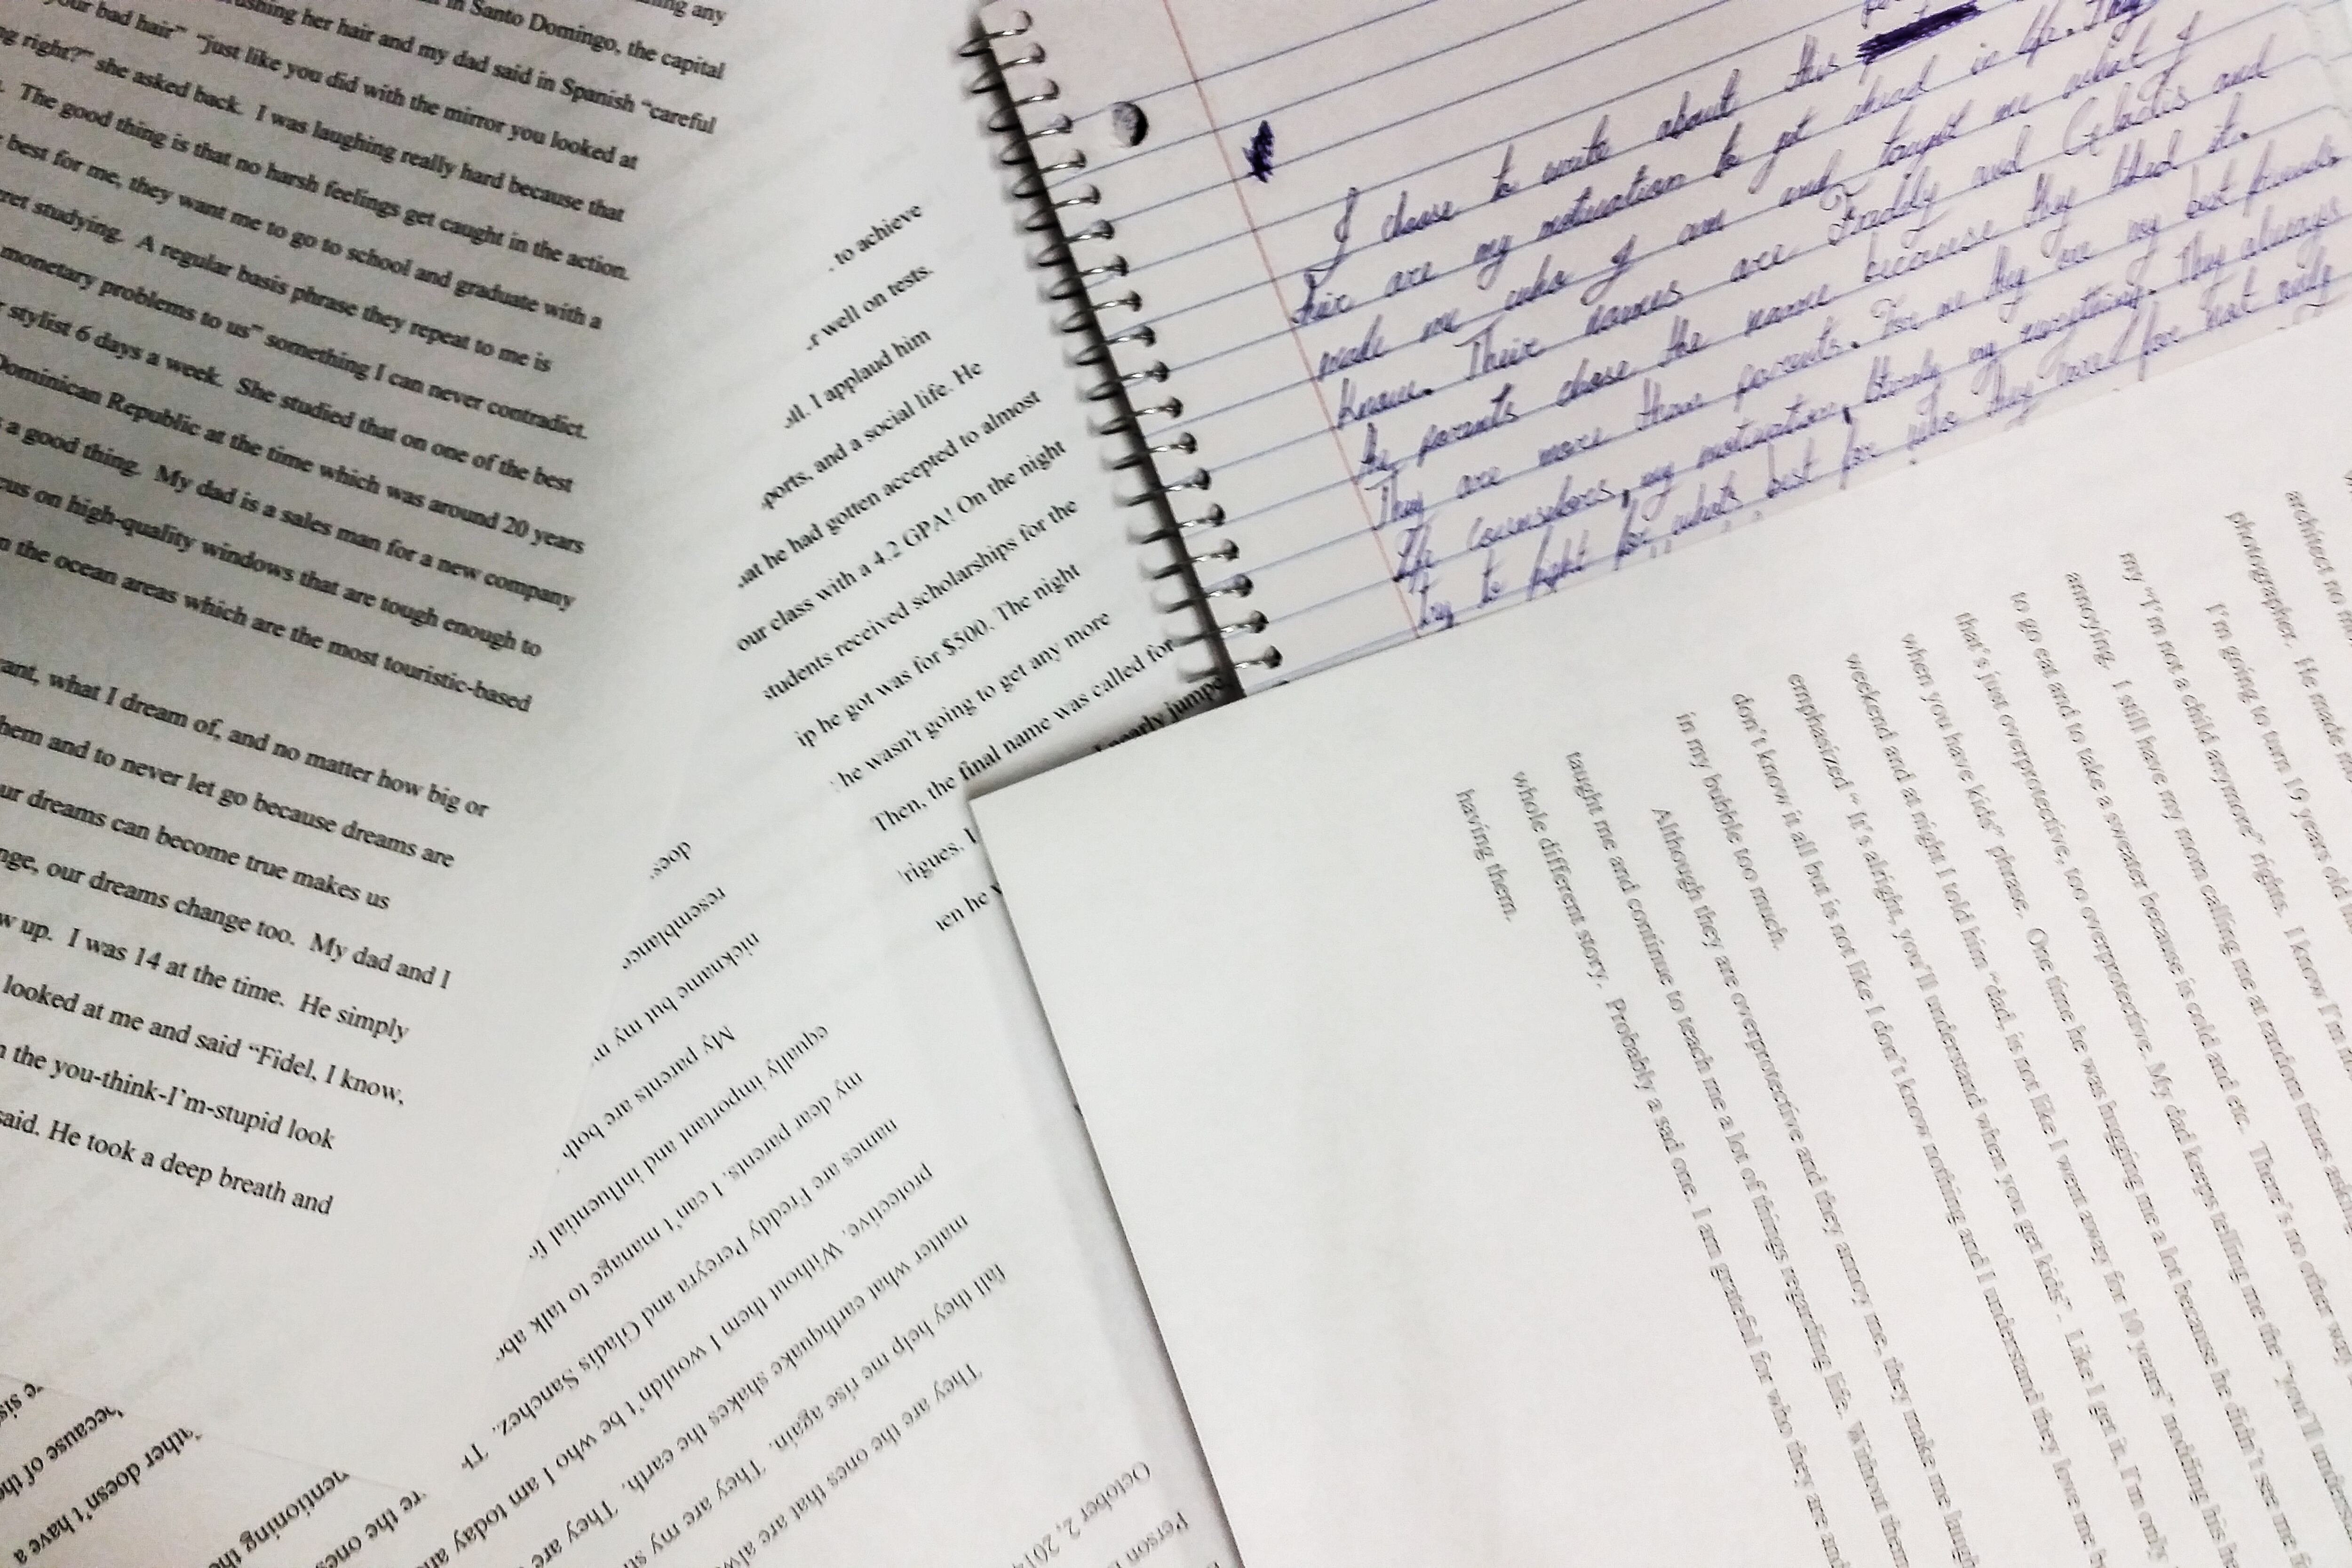 ning any
in Santo Domingo, the capital
rushing her hair and my dad said in Spanish “careful
your bad hair” “just like you did with the mirror you looked at
ng right?” she asked back.  I was laughing really hard because that
.  The good thing is that no harsh feelings get caught in the action.
best for me, they want me to go to school and graduate with a
ret studying.  A regular basis phrase they repeat to me is
monetary problems to us” something I can never contradict.
stylist 6 days a week.  She studied that on one of the best
Dominican Republic at the time which was around 20 years
a good thing.  My dad is a sales man for a new company
cus on high-quality windows that are tough enough to
n the ocean areas which are the most touristic-based
ant, what I dream of, and no matter how big or
hem and to never let go because dreams are
ur dreams can become true makes us
nge, our dreams change too.  My dad and I
w up.  I was 14 at the time.  He simply
looked at me and said “Fidel, I know,
n the you-think-I’m-stupid look
said. He took a deep breath and
to achieve
r well on tests.
all. I applaud him
ports, and a social life. He
at he had gotten accepted to almost
our class with a 4.2 GPA! On the night
students received scholarships for the
ip he got was for $500. The night
he wasn't going to get any more
Then, the final name was called for
rigues. I nearly jumpe
en he
I chose to write about this
are my motivation to get ahead in life. They
made me who I am and taught me what I
know. Their names are Freddy and Gladis and
the parents chose the name because they liked it.
They are more than parents. For me they are my best friends,
life counselors, my motivation, my everything. They always
try to fight for whats best for who they for not only
Person
October 2, 201
They are the ones that are alw
fall they help me rise again.  They are my st
matter what earthquake shakes the earth.  They are
protective.  Without them I wouldn’t be who I am today an
names are Freddy Pereyra and Gladis Sanchez.  Th
my dear parents.  I can’t manage to talk abo
equally important and influential fo
My parents are both
nickname but my m
resemblance
does.
re the ones
mentioning the
ather doesn’t have a
because of the
re sis
architect no m
photographer.  He made m
I’m going to turn 19 years old
my “I’m not a child anymore” rights.  I know I’m
annoying.  I still have my mom calling me at random times
to go eat and to take a sweater because is cold and etc.  There’s no other way
that’s just overprotective, too overprotective. My dad keeps telling me the “you’ll understand
when you have kids” phrase.  One time he was hugging me a lot because he didn’t see me
weekend and at night I told him “dad, is not like I went away for 10 years” nodding his h
emphasized “ It’s alright, you’ll understand when you get kids”.  Like I get it, I’m only
don’t know it all but is not like I don’t know nothing and I understand they love me b
in my bubble too much.
Although they are overprotective and they annoy me, they make me laugh
taught me and continue to teach me a lot of things regarding life. Without them
whole different story.  Probably a sad one. I am grateful for who they are and
having them.